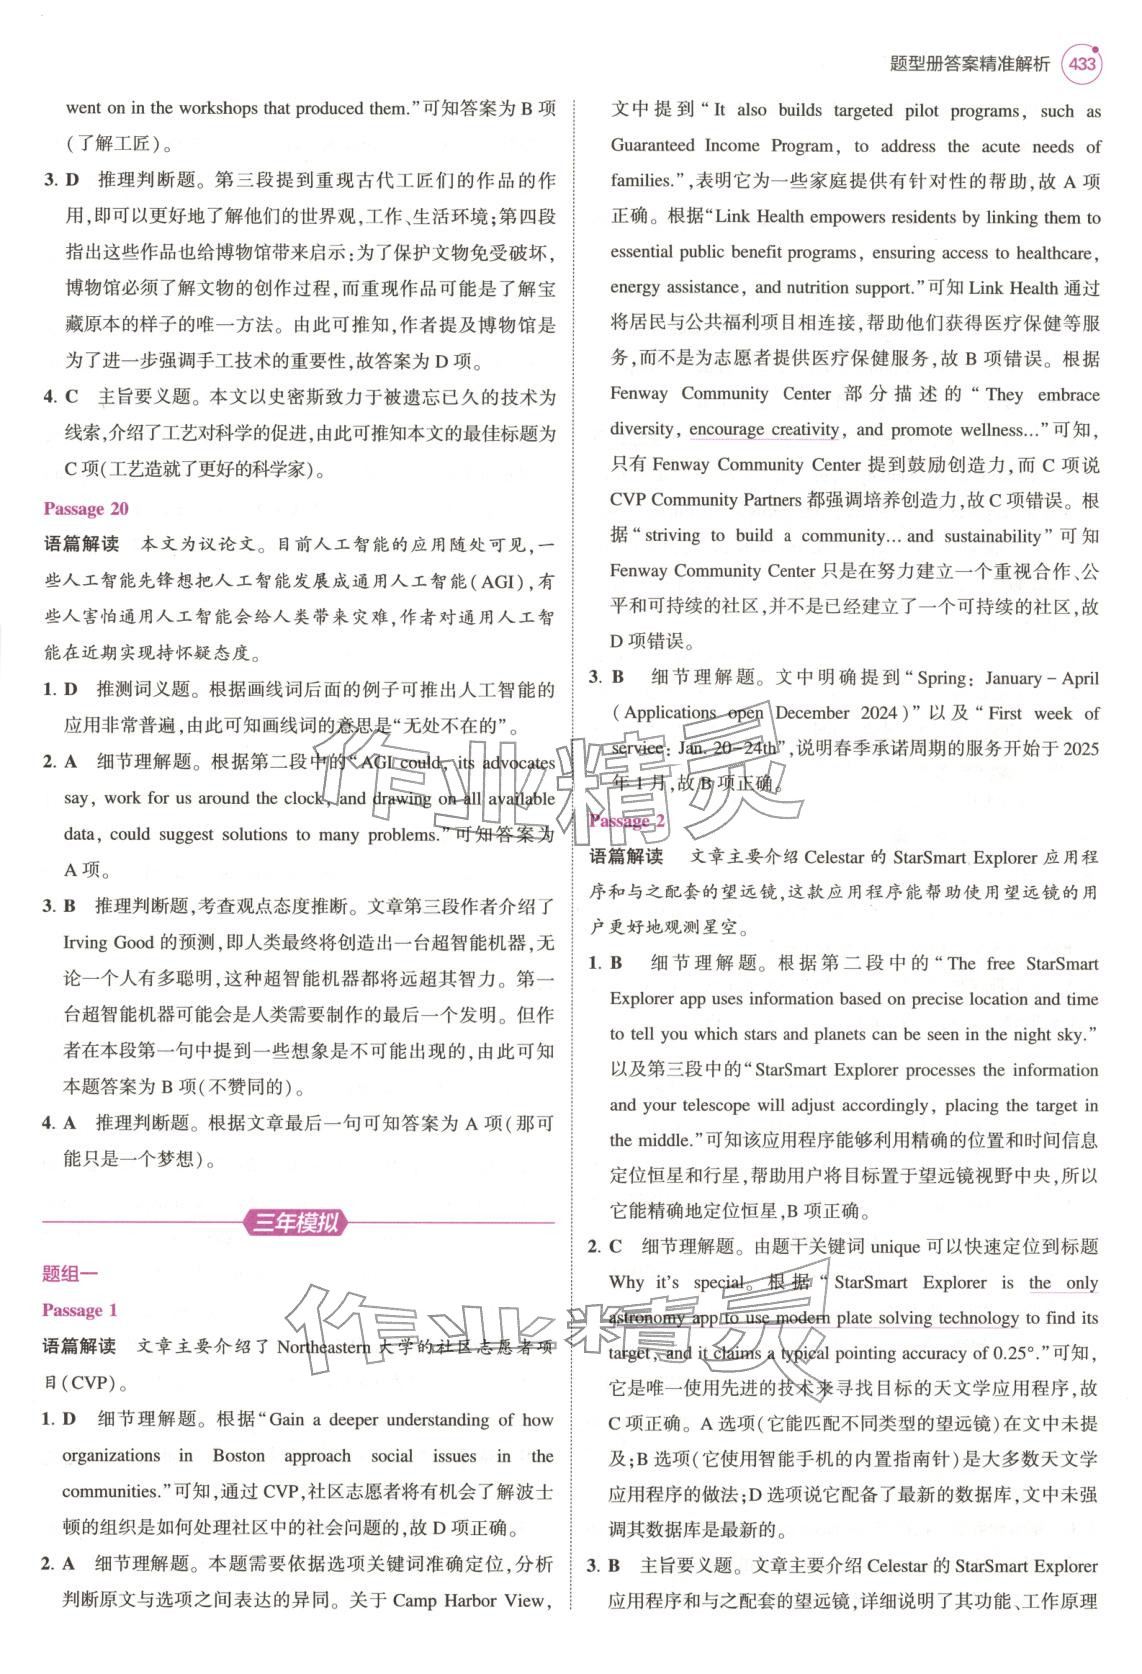 题型册答案精准解析 433
went on in the workshops that produced them.”可知答案为 B 项
(了解工匠)。
3. D 推理判断题。第三段提到重现古代工匠们的作品的作
用,即可以更好地了解他们的世界观,工作、生活环境;第四段
指出这些作品也给博物馆带来启示:为了保护文物免受破坏,
博物馆必须了解文物的创作过程,而重现作品可能是了解宝
藏原本的样子的唯一方法。由此可推知,作者提及博物馆是
为了进一步强调手工技术的重要性,故答案为 D 项。
4. C 主旨要义题。本文以史密斯致力于被遗忘已久的技术为
线索,介绍了工艺对科学的促进,由此可推知本文的最佳标题为
C 项(工艺造就了更好的科学家)。
Passage 20
语篇解读 本文为议论文。目前人工智能的应用随处可见,一
些人工智能先锋想把人工智能发展成通用人工智能(AGI),有
些人害怕通用人工智能会给人类带来灾难,作者对通用人工智
能在近期实现持怀疑态度。
1. D 推测词义题。根据画线词后面的例子可推出人工智能的
应用非常普遍,由此可知画线词的意思是“无处不在的”。
2. A 细节理解题。根据第二段中的“AGI could, its advocates
say, work for us around the clock, and drawing on all available
data, could suggest solutions to many problems.”可知答案为
A 项。
3. B 推理判断题,考查观点态度推断。文章第三段作者介绍了
Irving Good 的预测,即人类最终将创造出一台超智能机器,无
论一个人有多聪明,这种超智能机器都将远超其智力。第一
台超智能机器可能会是人类需要制作的最后一个发明。但作
者在本段第一句中提到一些想象是不可能出现的,由此可知
本题答案为 B 项(不赞同的)。
4. A 推理判断题。根据文章最后一句可知答案为 A 项(那可
能只是一个梦想)。
三年模拟
题组一
Passage 1
语篇解读 文章主要介绍了 Northeastern 大学的社区志愿者项
目(CVP)。
1. D 细节理解题。根据“Gain a deeper understanding of how
organizations in Boston approach social issues in the
communities.”可知,通过 CVP,社区志愿者将有机会了解波士
顿的组织是如何处理社区中的社会问题的,故 D 项正确。
2. A 细节理解题。本题需要依据选项关键词准确定位,分析
判断原文与选项之间表达的异同。关于 Camp Harbor View,
文中提到“It also builds targeted pilot programs, such as
Guaranteed Income Program, to address the acute needs of
families.”,表明它为一些家庭提供有针对性的帮助,故 A 项
正确。根据“Link Health empowers residents by linking them to
essential public benefit programs, ensuring access to healthcare,
energy assistance, and nutrition support.”可知 Link Health 通过
将居民与公共福利项目相连接,帮助他们获得医疗保健等服
务,而不是为志愿者提供医疗保健服务,故 B 项错误。根据
Fenway Community Center 部分描述的“They embrace
diversity, encourage creativity, and promote wellness...”可知,
只有 Fenway Community Center 提到鼓励创造力,而 C 项说
CVP Community Partners 都强调培养创造力,故 C 项错误。根
据“striving to build a community... and sustainability”可知
Fenway Community Center 只是在努力建立一个重视合作、公
平和可持续的社区,并不是已经建立了一个可持续的社区,故
D 项错误。
3. B 细节理解题。文中明确提到“Spring: January-April
(Applications open December 2024)”以及“First week of
service: Jan. 20-24th”,说明春季承诺周期的服务开始于 2025
年 1 月,故 B 项正确。
Passage 2
语篇解读 文章主要介绍 Celestar 的 StarSmart Explorer 应用程
序和与之配套的望远镜,这款应用程序能帮助使用望远镜的用
户更好地观测星空。
1. B 细节理解题。根据第二段中的“The free StarSmart
Explorer app uses information based on precise location and time
to tell you which stars and planets can be seen in the night sky.”
以及第三段中的“StarSmart Explorer processes the information
and your telescope will adjust accordingly, placing the target in
the middle.”可知该应用程序能够利用精确的位置和时间信息
定位恒星和行星,帮助用户将目标置于望远镜视野中央,所以
它能精确地定位恒星,B 项正确。
2. C 细节理解题。由题干关键词 unique 可以快速定位到标题
Why it’s special。根据“StarSmart Explorer is the only
astronomy app to use modern plate solving technology to find its
target, and it claims a typical pointing accuracy of 0.25°.”可知,
它是唯一使用先进的技术来寻找目标的天文学应用程序,故
C 项正确。A 选项(它能匹配不同类型的望远镜)在文中未提
及;B 选项(它使用智能手机的内置指南针)是大多数天文学
应用程序的做法;D 选项说它配备了最新的数据库,文中未强
调其数据库是最新的。
3. B 主旨要义题。文章主要介绍 Celestar 的 StarSmart Explorer
应用程序和与之配套的望远镜,详细说明了其功能、工作原理
作业精灵
作业精灵